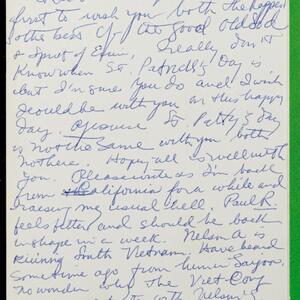 first to wish you both the happiest
& the best of the good old sod
& Spirit of Erin, I really don't
Know when St. Patrick's Day is
but I'm sure you do and I wish
I could be with you on this happy
day. Of course St. Patty's Day
is not the Same with you both
not here. Hope all is well with
you. Please write as I'm back
from California for a while and
raising my usual hell. Paul R.
feels better and should be back
in shape in a week. Nelson A is
ruining South Vietnam. Have heard
sometime ago from him in Saigon,
no wonder why the Viet-Cong
with Nelson's